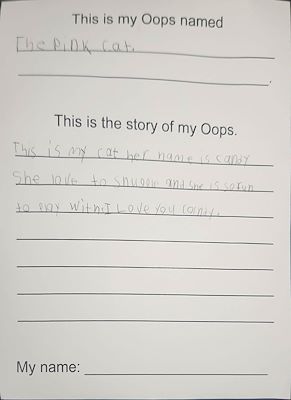 This is my Oops named
The Pink cat.
This is the story of my Oops.
This is my cat her name is candy
She love to snuggle and she is so fun
to play with. I Love you candy.
My name: